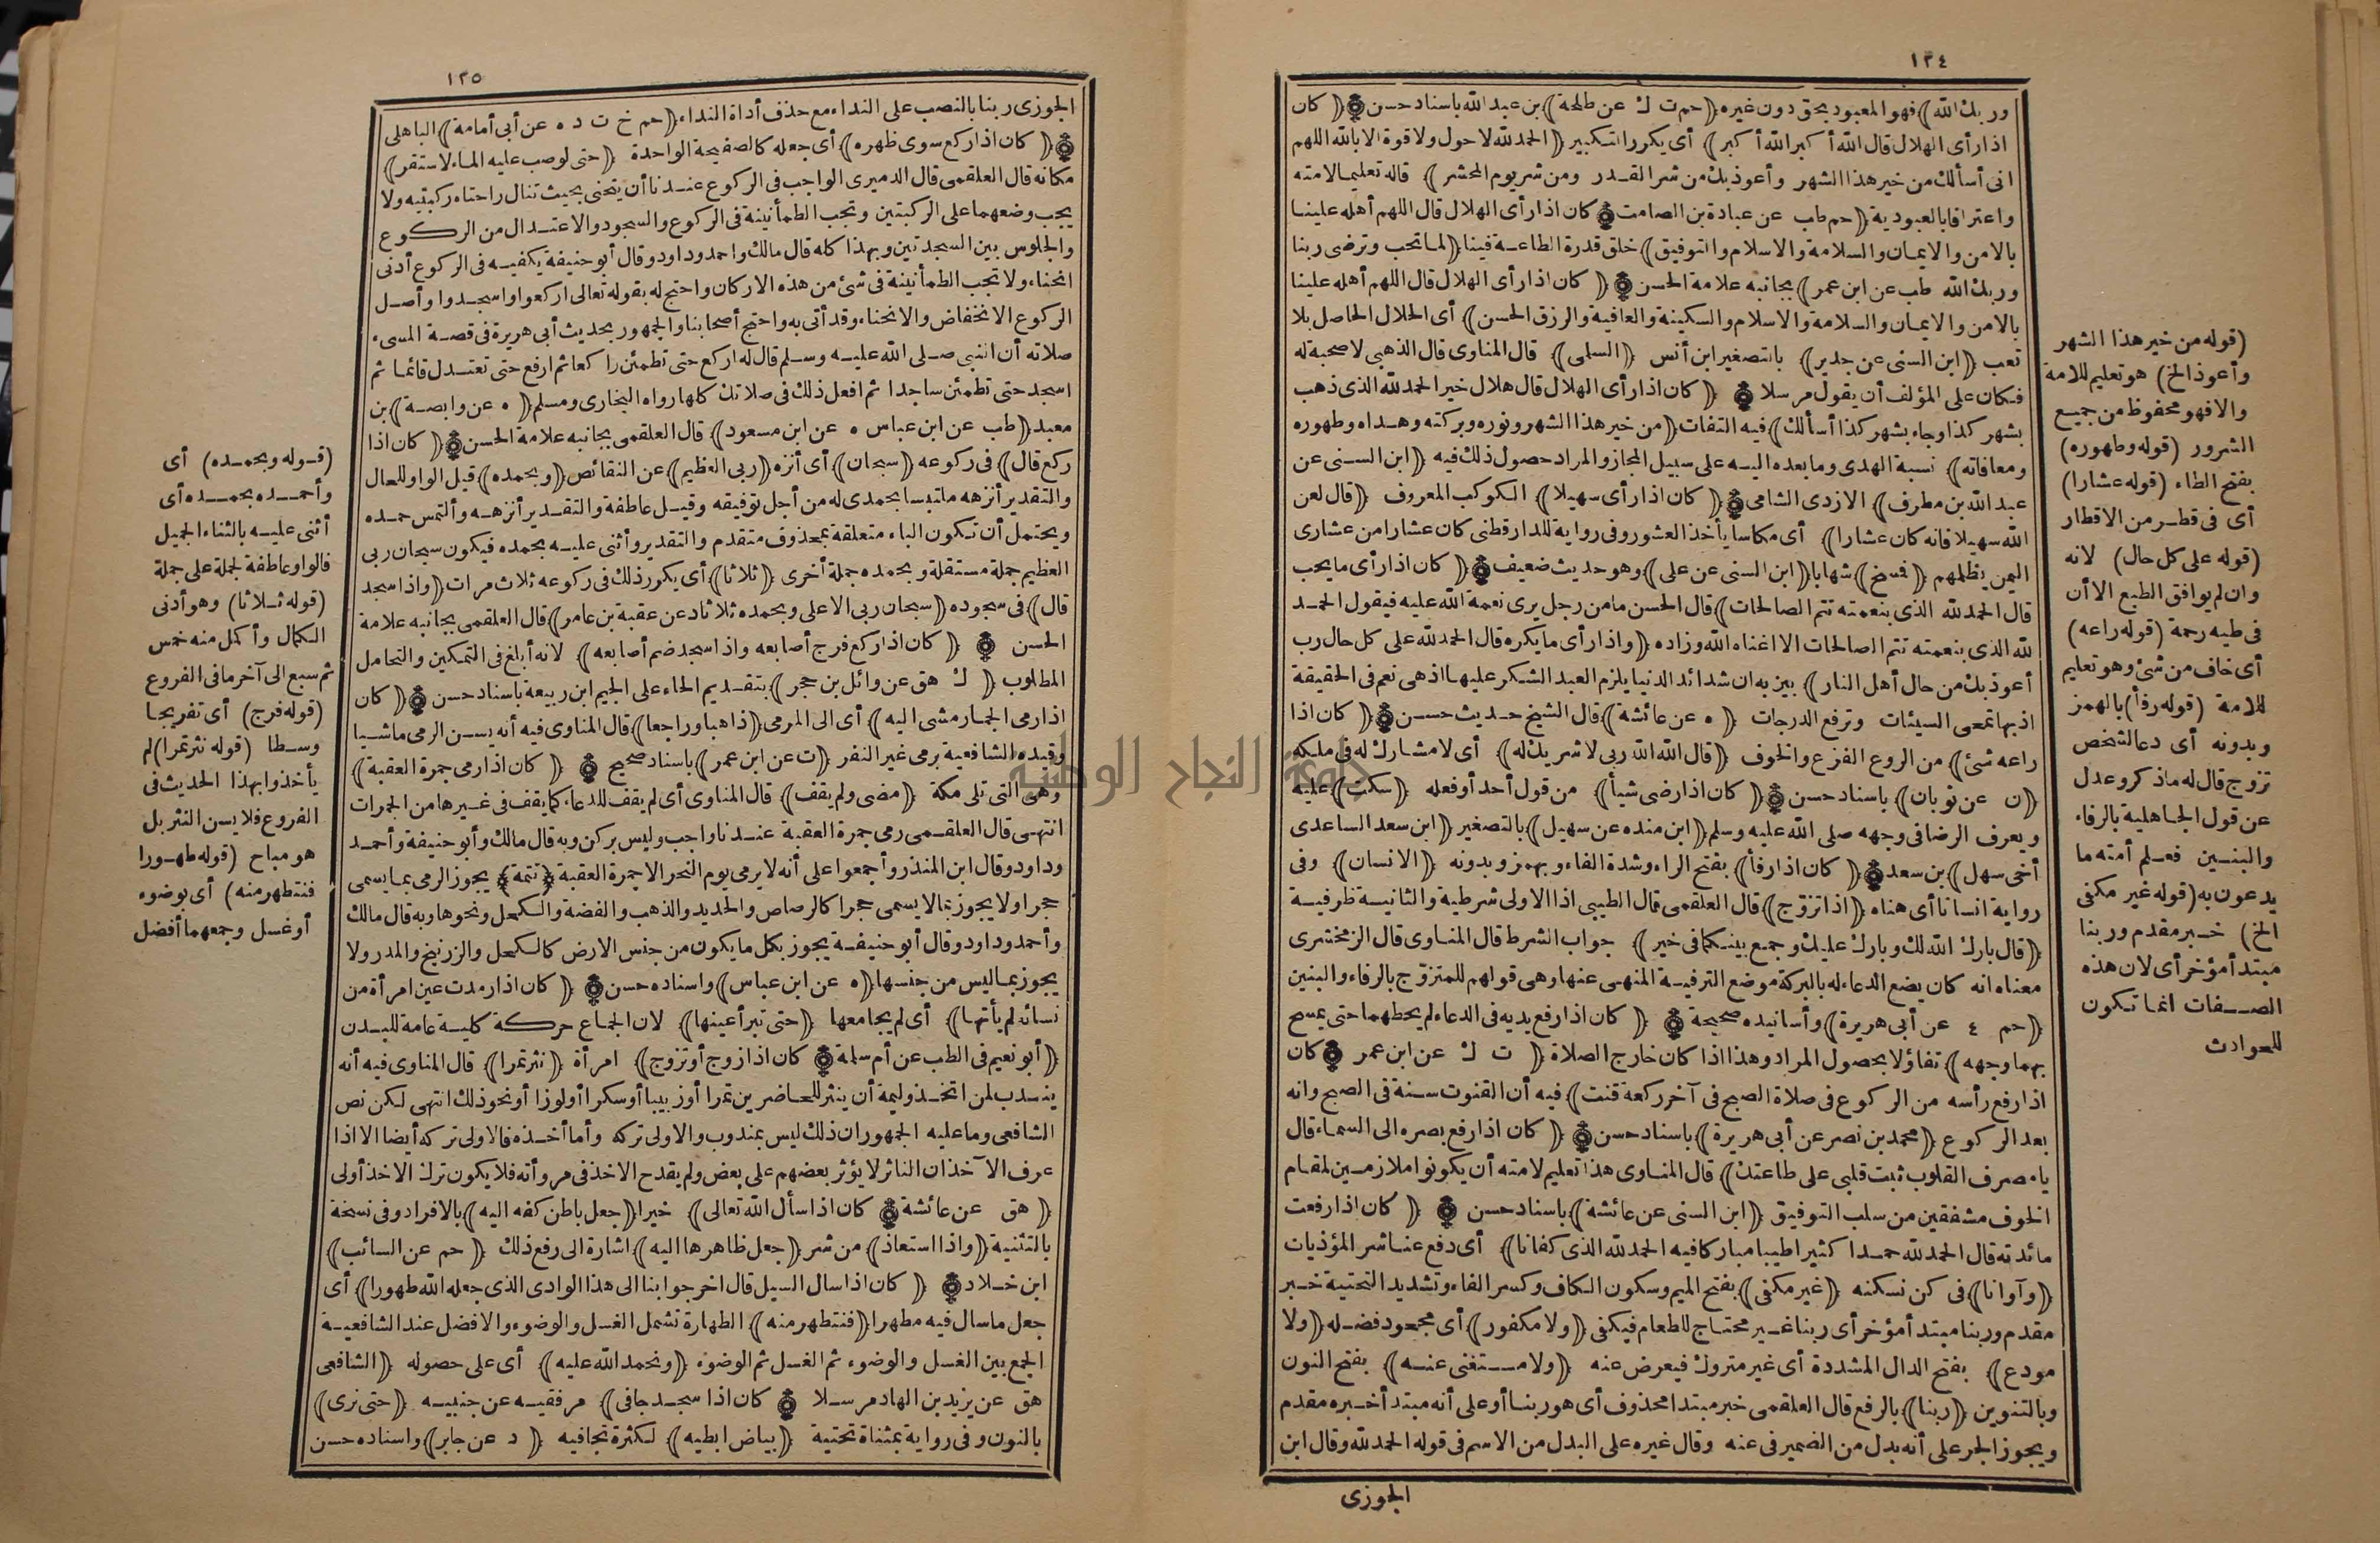 ١٣٤
وربك الله) فهو المعبود بحق دون غيره (حم ت ك عن طلحة) بن عبد الله باسناد حسن (كان
اذا رأى الهلال قال الله أكبر الله أكبر) أى يكرر التكبير (الحمد لله لا حول ولا قوة الا بالله اللهم
انى أسألك من خير هذا الشهر وأعوذ بك من شر القدر ومن شر يوم المحشر) قاله تعليما لامته
واعترافا بالعبودية (حم طب عن عبادة بن الصامت كان اذا رأى الهلال قال اللهم أهله علينا
بالامن والايمان والسلامة والاسلام والتوفيق) خلق قدرة الطاعة فينا (لما تحب وترضى ربنا
وربك الله طب عن ابن عمر) بجانبه علامة الحسن (كان اذا رأى الهلال قال اللهم أهله علينا
بالامن والايمان والسلامة والاسلام والسكينة والعافية والرزق الحسن) أى الحلال الحاصل بلا
تعب (ابن السنى عن جدير) بالتصغير ابن أنس (السلمى) قال المناوى قال الذهبى لا صحبة له
فكان على المؤلف أن يقول مرسلا (كان اذا رأى الهلال قال هلال خير الحمد لله الذى ذهب
بشهر كذا وجاء بشهر كذا أسألك) فيه التفات (من خير هذا الشهر ونوره وبركته وهداه وطهوره
ومعافاته) نسبة الهدى وما بعده اليه على سبيل المجاز والمراد حصول ذلك فيه (ابن السنى عن
عبد الله بن مطرف) الازدى الشامى (كان اذا رأى سهيلا) الكوكب المعروف (قال لعن
الله سهيلا فانه كان عشارا) أى مكاسا يأخذ العشور وفى رواية للدارقطنى كان عشارا من عشارى
اليمن يظلمهم (فمسخ) شهابا (ابن السنى عن على) وهو حديث ضعيف (كان اذا رأى ما يحب
قال الحمد لله الذى بنعمته تتم الصالحات) قال الحسن ما من رجل يرى نعمة الله عليه فيقول الحمد
لله الذى بنعمته تتم الصالحات الا اغناه الله وزاده (واذا رأى ما يكره قال الحمد لله على كل حال رب
أعوذ بك من حال أهل النار) بين به ان شدائد الدنيا يلزم العبد الشكر عليها اذ هى نعم فى الحقيقة
اذ بها تمحى السيئات وترفع الدرجات (ه عن عائشة) قال الشيخ حديث حسن (كان اذا
راعه شئ) من الروع الفزع والخوف (قال الله الله ربى لا شريك له) أى لا مشارك له فى ملكه
(ن عن ثوبان) باسناد حسن (كان اذا رضى شيأ) من قول أحد أو فعله (سكت) عليه
ويعرف الرضا فى وجهه صلى الله عليه وسلم (ابن منده عن سهيل) بالتصغير (ابن سعد الساعدى
أخى سهل) بن سعد (كان اذا رفأ) بفتح الراء وشدة الفاء وبهمز وبدونه (الانسان) وفى
رواية انسانا أى هناه (اذا تزوج) قال العلقمى قال الطيبى اذا الاولى شرطية والثانية ظرفية
(قال بارك الله لك وبارك عليك وجمع بينكما فى خير) جواب الشرط قال المناوى قال الزمخشرى
معناه انه كان يضع الدعاء له بالبركة موضع الترفية المنهى عنها وهى قولهم للمتزوج بالرفاء والبنين
(حم ٤ عن أبى هريرة) وأسانيده صحيحة (كان اذا رفع يديه فى الدعاء لم يحطهما حتى يمسح
بهما وجهه) تفاؤلا بحصول المراد وهذا اذا كان خارج الصلاة (ت ك عن ابن عمر كان
اذا رفع رأسه من الركوع فى صلاة الصبح فى آخر ركعة قنت) فيه أن القنوت سنة فى الصبح وانه
بعد الركوع (محمد بن نصر عن أبى هريرة) باسناد حسن (كان اذا رفع بصره الى السماء قال
يا مصرف القلوب ثبت قلبى على طاعتك) قال المناوى هذا تعليم لامته أن يكونوا ملازمين لمقام
الخوف مشفقين من سلب التوفيق (ابن السنى عن عائشة) باسناد حسن (كان اذا رفعت
مائدته قال الحمد لله حمدا كثيرا طيبا مباركا فيه الحمد لله الذى كفانا) أى دفع عنا شر المؤذيات
(وآوانا) فى كن نسكنه (غير مكفى) بفتح الميم وسكون الكاف وكسر الفاء وتشديد التحتية خبر
مقدم وربنا مبتدأ مؤخر أى ربنا غير محتاج للطعام فيكفى (ولا مكفور) أى مجحود فضله (ولا
مودع) بفتح الدال المشددة أى غير متروك فيعرض عنه (ولا مستغنى عنه) بفتح النون
وبالتنوين (ربنا) بالرفع قال العلقمى خبر مبتدا محذوف أى هو ربنا أو على أنه مبتدأ خبره مقدم
ويجوز الجر على أنه بدل من الضمير فى عنه وقال غيره على البدل من الاسم فى قوله الحمد لله وقال ابن
الجوزى
(قوله من خير هذا الشهر
وأعوذ الخ) هو تعليم للامة
والا فهو محفوظ من جميع
الشرور (قوله وطهوره)
بفتح الطاء (قوله عشارا)
أى فى قطر من الاقطار
(قوله على كل حال) لانه
وان لم يوافق الطبع الا أن
فى طيه رحمة (قوله راعه)
أى خاف من شئ وهو تعليم
للامة (قوله رفأ) بالهمز
وبدونه أى دعا لشخص
تزوج قال له ماذكر وعدل
عن قول الجاهلية بالرفاء
والبنين فعلم أمته ما
يدعون به (قوله غير مكفى
الخ) خبر مقدم وربنا
مبتدأ مؤخر أى لان هذه
الصفات انما تكون
للحوادث
١٣٥
الجوزى ربنا بالنصب على النداء مع حذف أداة النداء (حم خ ت د ه عن أبى أمامة) الباهلى
(كان اذا ركع سوى ظهره) أى جعله كالصفيحة الواحدة (حتى لو صب عليه الماء لاستقر)
مكانه قال العلقمى قال الدميرى الواجب فى الركوع عندنا أن ينحنى بحيث تنال راحتاه ركبتيه ولا
يجب وضعهما على الركبتين وتجب الطمأنينة فى الركوع والسجود والاعتدال من الركوع
والجلوس بين السجدتين وبهذا كله قال مالك واحمد وداود وقال أبو حنيفة يكفيه فى الركوع أدنى
انحناء ولا تجب الطمأنينة فى شئ من هذه الاركان واحتج له بقوله تعالى اركعوا واسجدوا وأصل
الركوع الانخفاض والانحناء وقد أتى به واحتج أصحابنا والجمهور بحديث أبى هريرة فى قصة المسىء
صلاته أن النبى صلى الله عليه وسلم قال له اركع حتى تطمئن راكعا ثم ارفع حتى تعتدل قائما ثم
اسجد حتى تطمئن ساجدا ثم افعل ذلك فى صلاتك كلها رواه البخارى ومسلم (ه عن وابصة) بن
معبد (طب عن ابن عباس ه عن ابن مسعود) قال العلقمى بجانبه علامة الحسن (كان اذا
ركع قال) فى ركوعه (سبحان) أى أنزه (ربى العظيم) عن النقائص (وبحمده) قيل الواو للحال
والتقدير أنزهه ملتبسا بحمدى له من أجل توفيقه وقيل عاطفة والتقدير أنزهه وألتمس حمده
ويحتمل أن تكون الباء متعلقة بمحذوف متقدم والتقدير وأثنى عليه بحمده فيكون سبحان ربى
العظيم جملة مستقلة وبحمده جملة أخرى (ثلاثا) أى يكرر ذلك فى ركوعه ثلاث مرات (واذا سجد
قال) فى سجوده (سبحان ربى الاعلى وبحمده ثلاثا د عن عقبة بن عامر) قال العلقمى بجانبه علامة
الحسن (كان اذا ركع فرج أصابعه واذا سجد ضم أصابعه) لانه أبلغ فى التمكين والتحامل
المطلوب (ك هق عن وائل بن حجر) بتقديم الحاء على الجيم ابن ربيعة باسناد حسن (كان
اذا رمى الجمار مشى اليه) أى الى المرمى (ذاهبا وراجعا) قال المناوى فيه أنه يسن الرمى ماشيا
وقيده الشافعية برمى غير النفر (ت عن ابن عمر) باسناد صحيح (كان اذا رمى جمرة العقبة)
وهى التى تلى مكة (مضى ولم يقف) قال المناوى أى لم يقف للدعاء كما يقف فى غيرها من الجمرات
انتهى قال العلقمى رمى جمرة العقبة عندنا واجب وليس بركن وبه قال مالك وأبو حنيفة وأحمد
وداود وقال ابن المنذر وأجمعوا على أنه لا يرمى يوم النحر الا جمرة العقبة (تتمة) يجوز الرمى بما يسمى
حجرا ولا يجوز بما لا يسمى حجرا كالرصاص والحديد والذهب والفضة والكحل ونحوها وبه قال مالك
وأحمد وداود وقال أبو حنيفة يجوز بكل ما يكون من جنس الارض كالكحل والزرنيخ والمدر ولا
يجوز بما ليس من جنسها (ه عن ابن عباس) واسناده حسن (كان اذا رمدت عين امرأة من
نسائه لم يأتها) أى لم يجامعها (حتى تبرأ عينها) لان الجماع حركة كلية عامة للبدن
(أبو نعيم فى الطب عن أم سلمة كان اذا زوج أو تزوج) امرأة (نثر تمرا) قال المناوى فيه أنه
يندب لمن اتخذ وليمة أن ينثر للحاضرين تمرا أو زبيبا أو سكرا أو لوزا أو نحو ذلك انتهى لكن نص
الشافعى وما عليه الجمهور ان ذلك ليس بمندوب والاولى تركه وأما أخذه فالاولى تركه أيضا الا اذا
عرف الآخذ ان الناثر لا يؤثر بعضهم على بعض ولم يقدح الاخذ فى مروأته فلا يكون ترك الاخذ أولى
(هق عن عائشة كان اذا سأل الله تعالى) خيرا (جعل باطن كفه اليه) بالافراد وفى نسخة
بالتثنية (واذا استعاذ) من شر (جعل ظاهرها اليه) اشارة الى رفع ذلك (حم عن السائب)
ابن خلاد (كان اذا سال السيل قال اخرجوا بنا الى هذا الوادى الذى جعله الله طهورا) أى
جعل ما سال فيه مطهرا (فنتطهر منه) الطهارة تشمل الغسل والوضوء والافضل عند الشافعية
الجمع بين الغسل والوضوء ثم الغسل ثم الوضوء (ونحمد الله عليه) أى على حصوله (الشافعى
هق عن يزيد بن الهاد مرسلا كان اذا سجد جافى) مرفقيه عن جنبيه (حتى نرى)
بالنون وفى رواية بمثناة تحتية (بياض ابطيه) لكثرة تجافيه (د عن جابر) واسناده حسن
(قوله وبحمده) أى
وأحمده بحمده أى
أثنى عليه بالثناء الجميل
فالواو عاطفة لجملة على جملة
(قوله ثلاثا) وهو أدنى
الكمال وأكمل منه خمس
ثم سبع الى آخر ما فى الفروع
(قوله فرج) أى تفريجا
وسطا (قوله نثر تمرا) لم
يأخذوا بهذا الحديث فى
الفروع فلا يسن النثر بل
هو مباح (قوله طهورا
فنتطهر منه) أى بوضوء
أو غسل وجمعهما أفضل
جامعة النجاح الوطنية